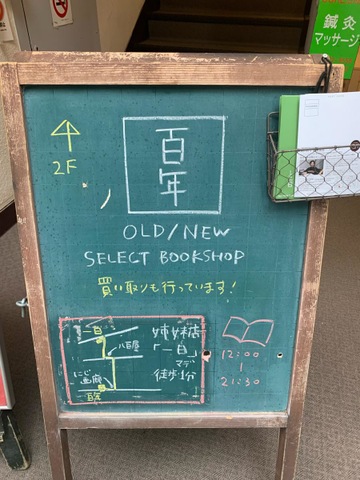 鍼灸
マッサージ
2F
百年
OLD/NEW
SELECT BOOKSHOP
買い取りも行っています!
一日
八百屋
にじ画廊
百年
姉妹店
「一日」
マデ
徒歩1分
12:00
|
21:30